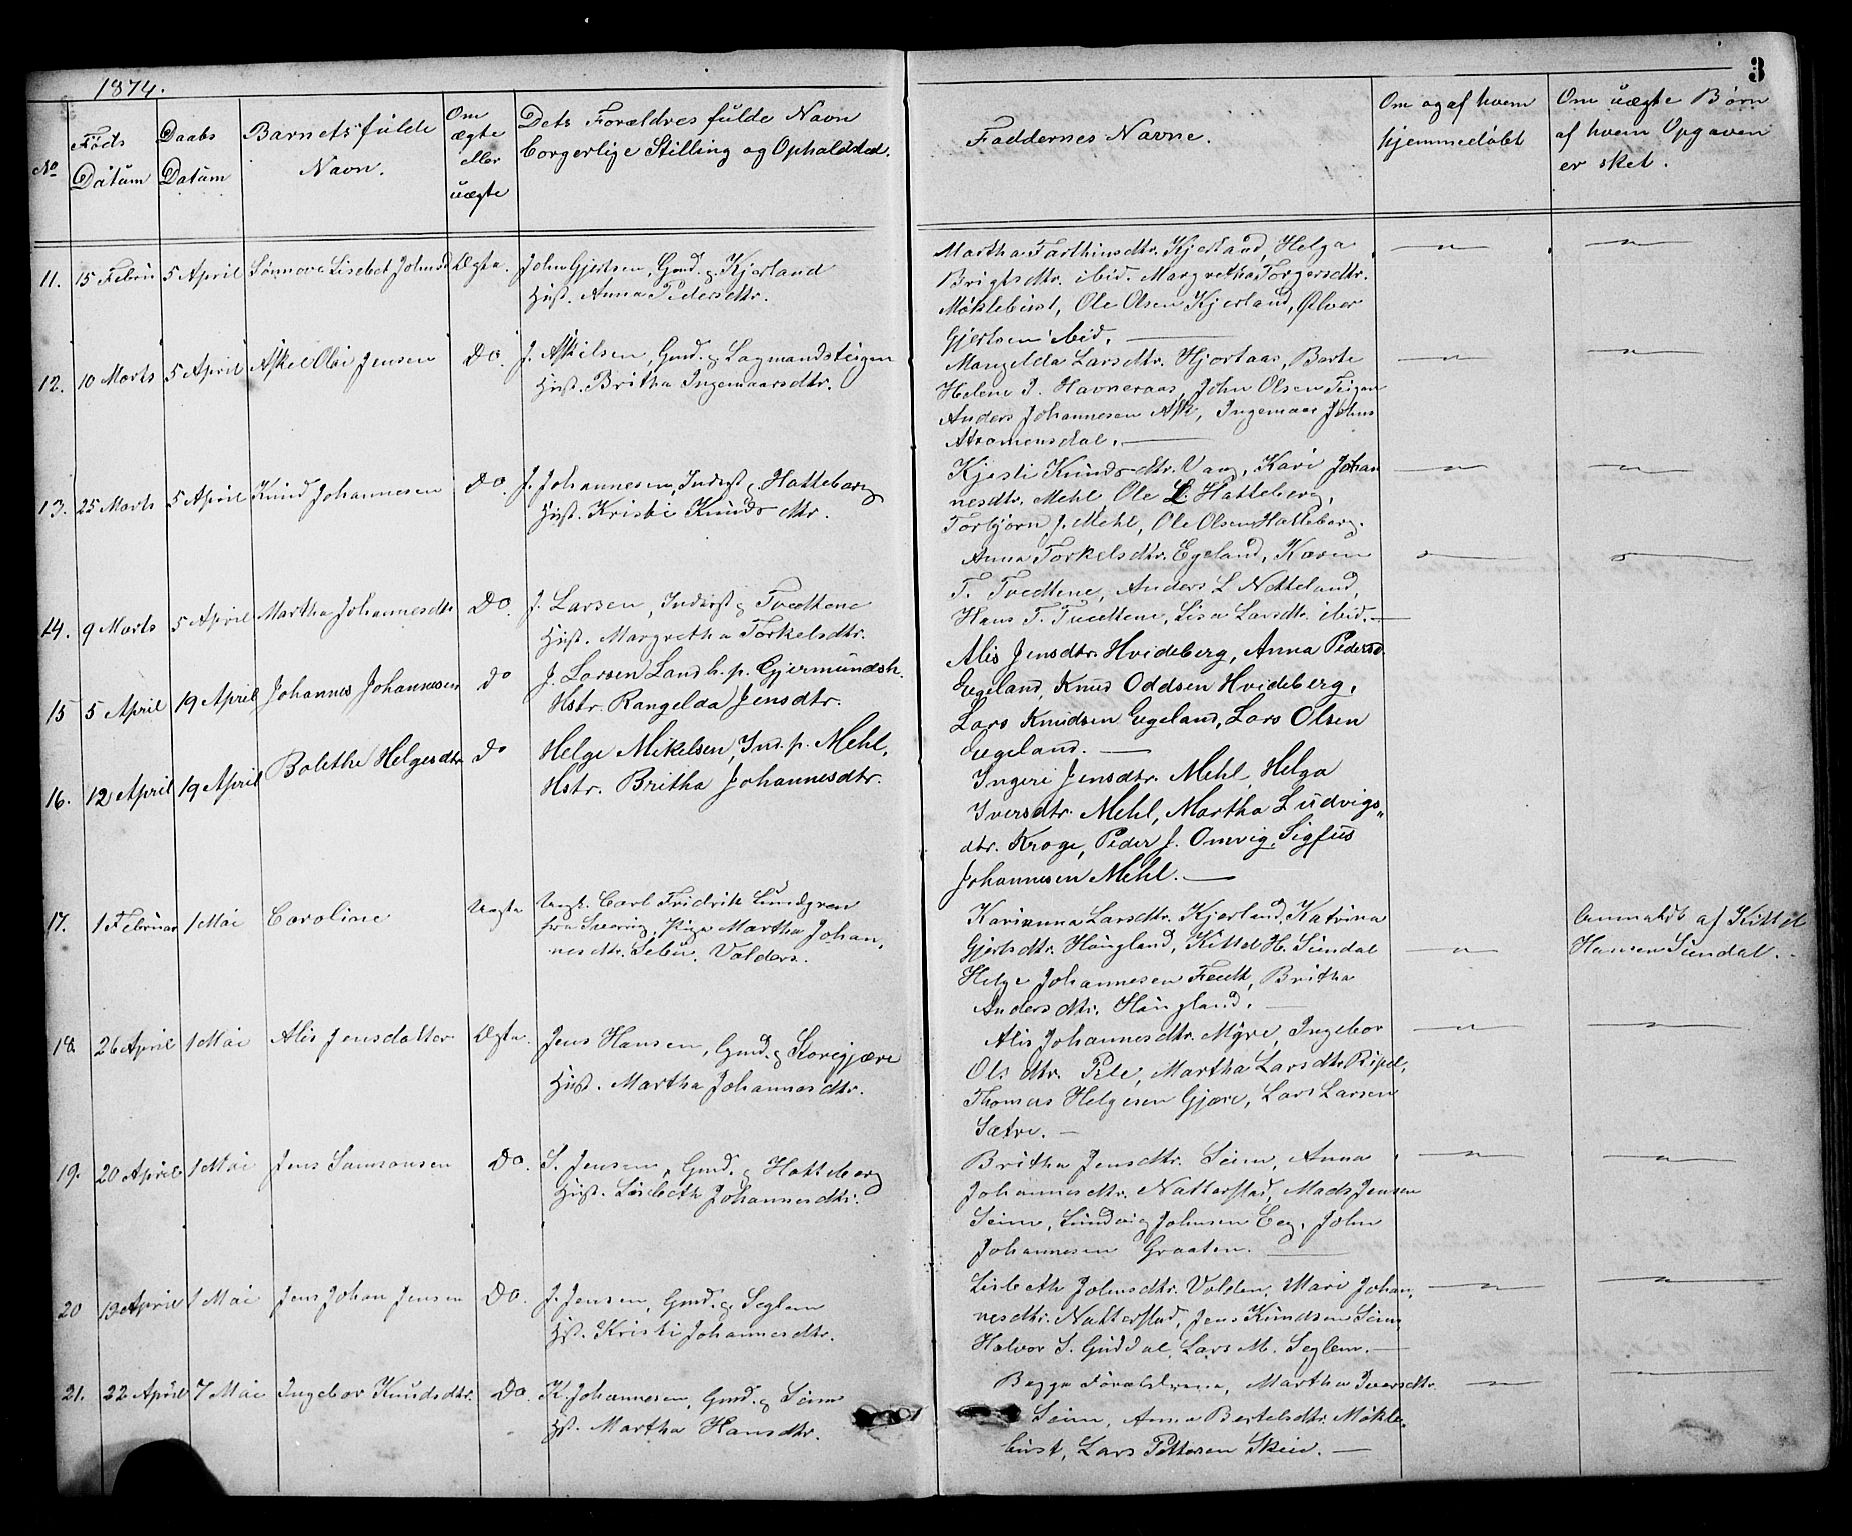 1874.
3
No
Føds Datum
Daabs Datum
Barnets fulde Navn.
Om ægte eller uægte
Dets Forældres fulde Navn borgerlige Stilling og Opholdsted.
Faddernes Navne.
Om og af hvem hjemmedøbt
Om uægte Børn af hvem Opgaven er sket.
11. 15 Febru 5 April Sønnova Lisebet Johnsd Ægta.
John Gjertsen, Gmd. p Kjerland
Hust. Anna Pedersdtr.
Martha Farthinsdtr. Kjerland, Helga
Brigtsdtr. ibid. Margretha Torgersdtr.
Møklebust, Ole Olsen Kjerland, Ølver
Gjertsen ibid.
12. 10 Marts 5 April Askel Olai Jensen Do.
J. Askilsen, Gmd. p Lagmandsteigen
Hust. Britha Ingemaarsdtr.
Mangelda Larsdtr. Hjortaas, Barte
Helene J. Havneraas, John Olsen Teigen
Anders Johannesen Ask, Ingemaar Johns
Atramensdal.
13. 25 Marts 5 April Knud Johannesen Do.
J. Johannesen, Inderst p Hatteberg
Hust. Kristi Knudsdtr.
Kjesti Knudsdtr. Vang, Kari Johan
nesdtr. Mehl, Ole L. Hatteberg,
Torbjørn J. Mehl, Ole Olsen Hatteberg.
14. 9 Marts 5 April Martha Johannesdtr Do.
J. Larsen, Inderst p Tvedtene
Hust. Margretha Torkelsdtr.
Anna Torkelsdtr. Egeland, Karen
T. Tvedtene, Anders L Netteland,
Hans T. Tvedtene, Lisa Larsdtr. ibid.
15 5 April 19 April Johannes Johannesen do
J. Larsen Landh. p. Gjermundsh.
Hstr. Rangelda Jensdtr.
Alis Jensdtr. Hvideberg, Anna Pedersd.
Egeland, Knud Oddsen Hvideberg,
Lars Knudsen Egeland, Lars Olsen
Egeland.
16. 12 April 19 April Bolethe Helgesdtr do
Helge Mikelsen, Ind. p. Mehl,
Hstr. Britha Johannesdtr.
Ingeri Jensdtr. Mehl, Helga
Iversdtr. Mehl, Martha Ludvigs„
dtr. Kroge, Peder J. Omvig, Sigfus
Johannesen Mehl.
17. 1 Februar 1 Mai Caroline Uægta
Ungk. Carl Fridrik Lundgren
fra Sverrig, Pige Martha Johan,
nesdtr. Sebu. Valders.
Karianna Larsdtr. Kjerland, Katrina
Gjertsdtr. Haugland, Kittel H. Sundal
Helge Johannesen Tvedt, Britha
Andersdtr. Haugland.
Anmeldt af Kittel
Hansen Sundal.
18. 26 April 1 Mai Alis Jensdatter Ægta.
Jens Hansen, Gmd. p Storegjære
Hust. Martha Johannesdtr.
Alis Johannesdtr. Myre, Ingebor
Ols dtr. Pile, Martha Larsdtr. Ripel,
Thomas Helgesen Gjære, Lars Larsen
Sætre.
19. 20 April 1 Mai Jens Samsonsen Do.
S. Jensen, Gmd. p Hatteberg
Hust. Lisbeth Johannesdtr.
Britha Jensdtr. Seim, Anna
Johannesdtr. Natterstad, Mads Jensen
Seim, Lundvig Johnsen Eeg, John
Johannesen Graaten.
20 19 April 1 Mai Jens Johan Jensen Do.
J. Jensen, Gmd. p Seglem
Hst. Kristi Johannesdtr.
Lisbeth Johnsdtr. Valden, Mari Johan,
nesdtr. Natterstad, Jens Knudsen Seim
Halvor S. Guddal, Lars M. Seglem.
21. 22 April 7 Mai Ingebor Knudsdtr. Do.
K. Johannesen, Gmd. p Seim
Hst. Martha Hansdtr.
Begge Forældrene, Martha Iversdtr.
Seim, Anna Bertelsdtr. Møkle,
bust, Lars Pettersen Skeie.